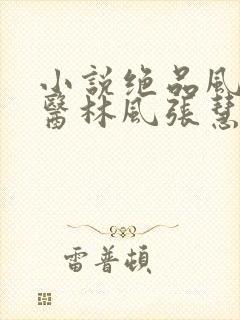 小說绝品風
醫林風張慧
雷普頓